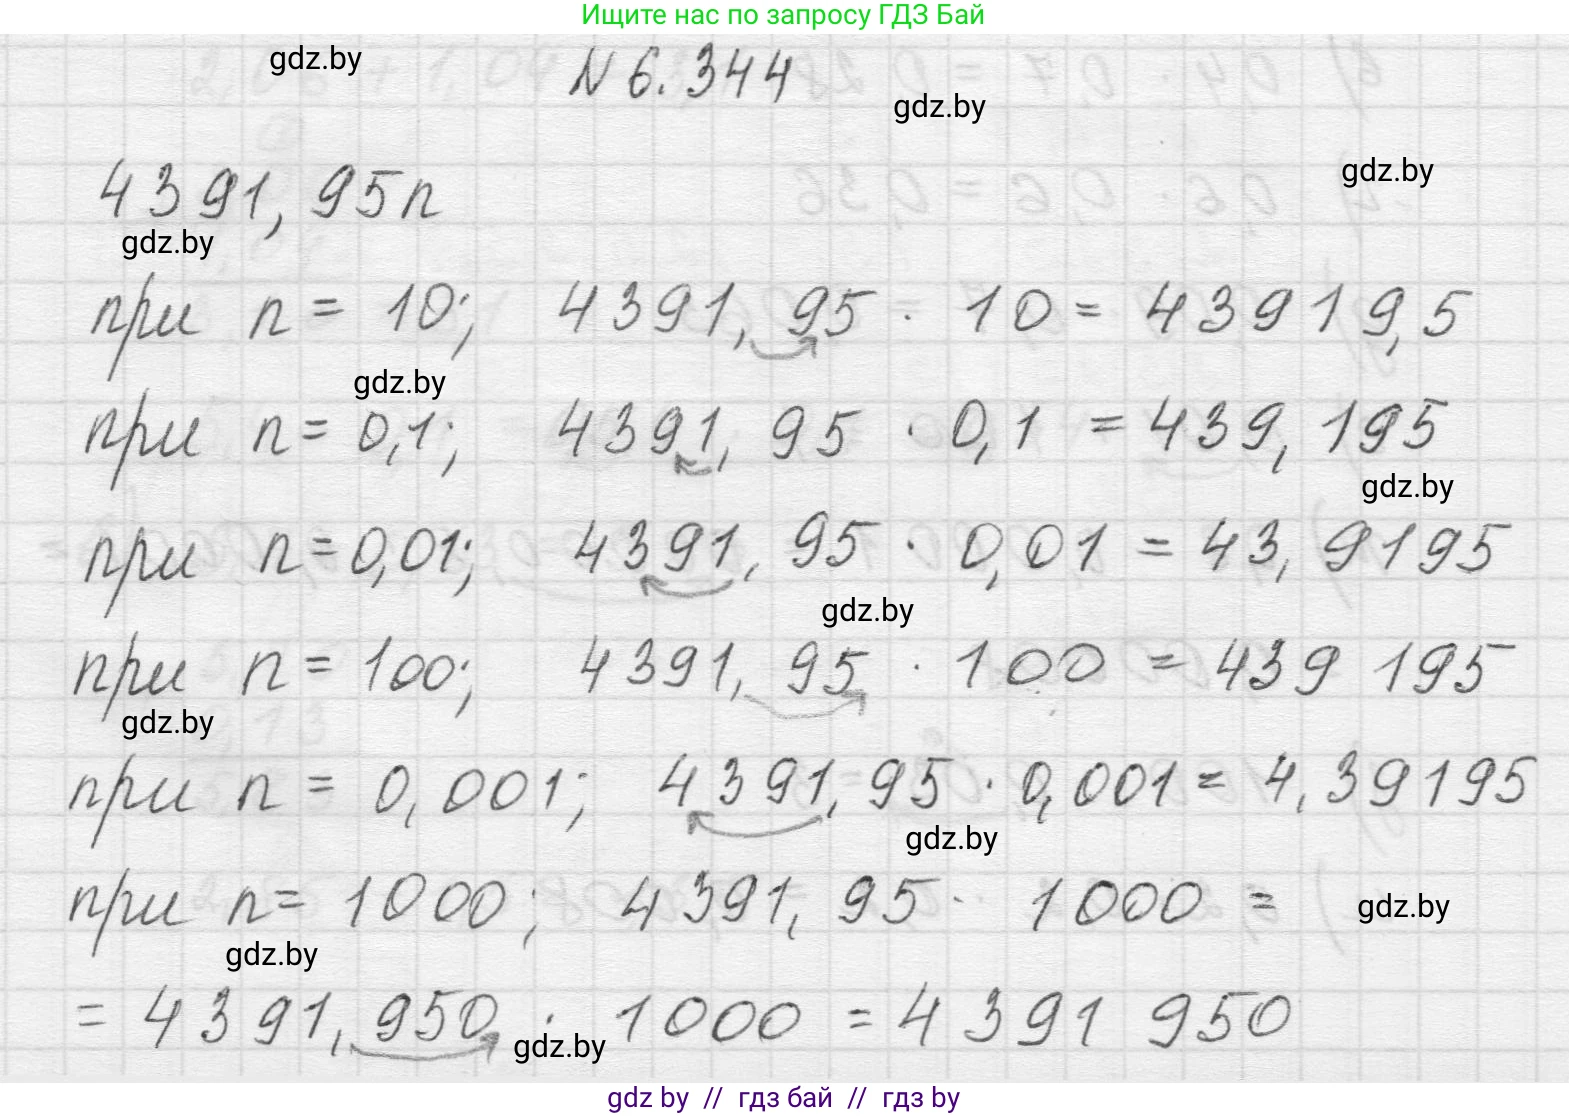 Ищите нас по запросу ГДЗ Бай
gdz.by
N 6.344
gdz.by
gdz.by
4391,95n
gdz.by
при n = 10; 4391,95 · 10 = 43919,5
gdz.by
при n = 0,1; 4391,95 · 0,1 = 439,195
gdz.by
при n = 0,01; 4391,95 · 0,01 = 43,9195
gdz.by
при n = 100; 4391,95 · 100 = 439 195
gdz.by
при n = 0,001; 4391,95 · 0,001 = 4,39195
gdz.by
при n = 1000; 4391,95 · 1000 =
gdz.by
gdz.by
= 4391,950 · 1000 = 4 391 950
gdz.by
gdz by // гдз бай // гдз by